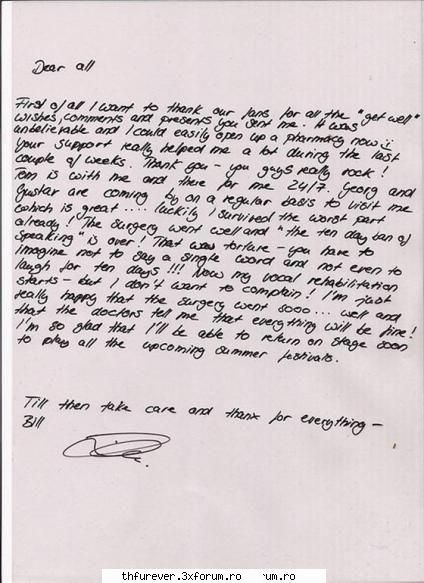 Dear all
First of all I want to thank our fans for all the "get well"
wishes, comments and presents you sent me. It was
unbelievable and I could easily open up a pharmacy now
Your support really helped me a lot during the last
couple of weeks. Thank you - you guys really rock!
Tom is with me and there for me 24/7. Georg and
Gustav are coming by on a regular basis to visit me
which is great .... luckily I survived the worst part
already! The surgery went well and "the ten day ban of
speaking" is over! That was torture - you have to
imagine not to say a single word and not even to
laugh for ten days!!! Now my vocal rehabilitation
starts - but I don't want to complain! I'm just
really happy that the surgery went sooo... well and
that the doctors tell me that everything will be fine!
I'm so glad that I'll be able to return on stage soon
to play all the upcoming summer festivals.
Till then take care and thanx for everything -
Bill
thfurever.3xforum.ro um.ro